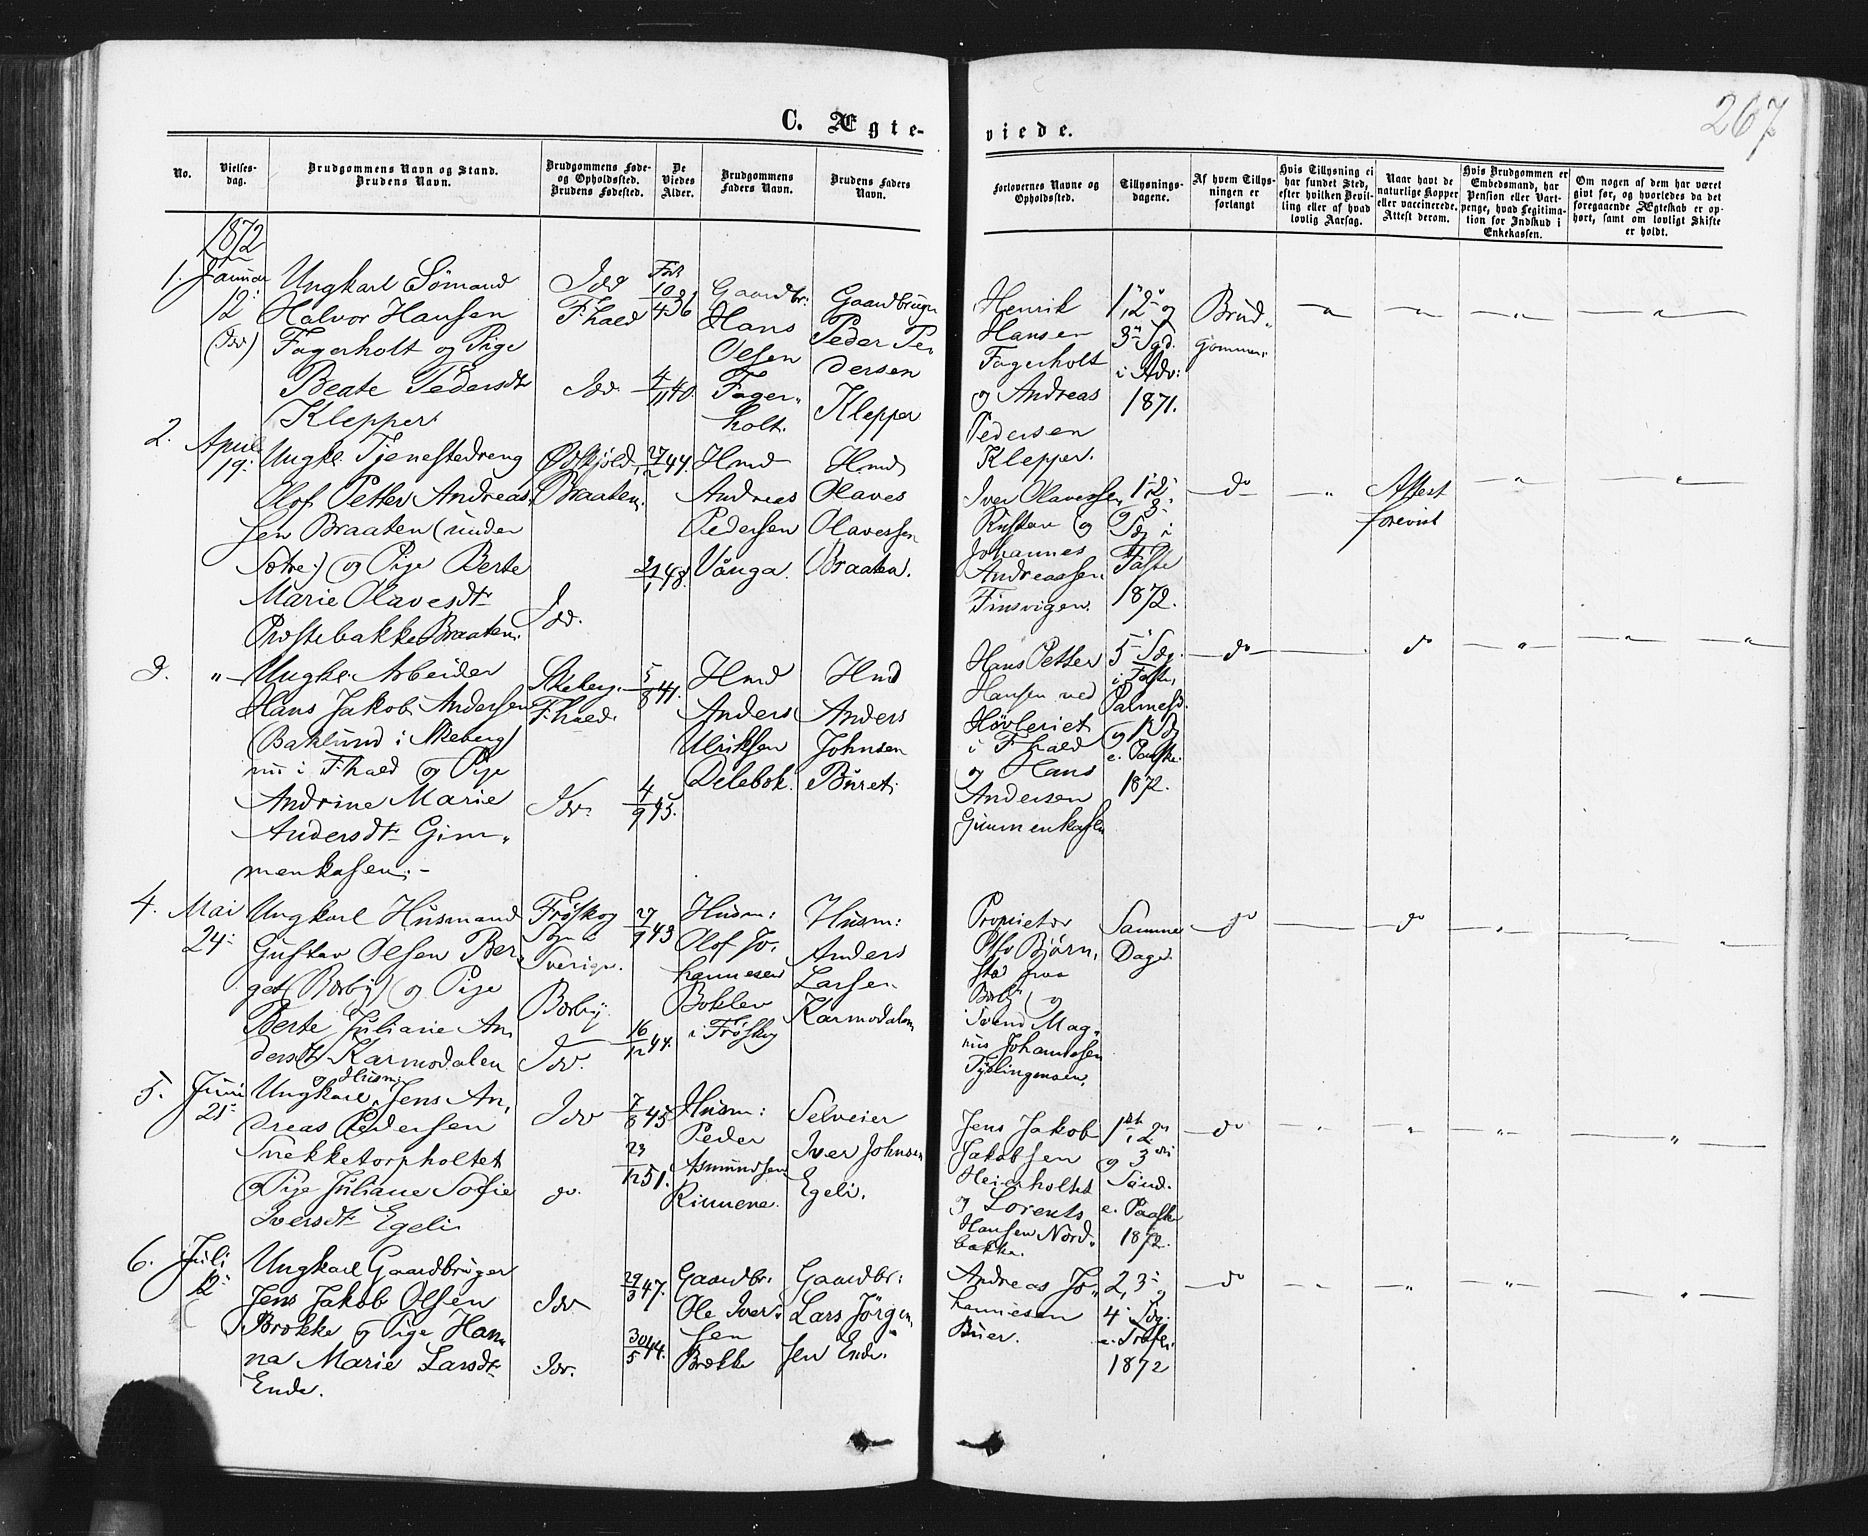 267
C. Ægte-
viede.
No.
Vielses-
dag.
Brudgommens Navn og Stand.
Brudens Navn.
Brudgommens Føde-
og Opholdssted.
Brudens Fødested.
De
Viedes
Alder.
Brudgommens
Faders Navn.
Brudens Faders
Navn.
Forlovernes Navne og
Opholdssted.
Tillysnings-
dagene.
Af hvem Tillys-
ningen er
forlangt
Hvis Tillysning ei
har fundet Sted,
efter hvilken Bevil-
ling eller af hvad
lovlig Aarsag.
Naar havt de
naturlige Kopper
eller vaccinerede.
Attest derom.
Hvis Brudgommen er
Embedsmand, har
Pension eller Vart-
penge, hvad Legitima-
tion for Indskud i
Enkekassen.
Om nogen af dem har været
givt før, og hvorledes da det
foregaaende Ægteskab er op-
hørt, samt om lovligt Skifte
er holdt.
1872
1.
Januar
12
(Idd)
Ungkarl Sømand
Halvor Hansen
Fagerholt og Pige
Beate Pedersdt
Klepper
Idd
Fhald
Idd.
10/4 36
4/11 40.
Gaardbr:
Hans
Olsen
Fager-
holt.
Gaardbruger
Peder Pe-
dersen
Klepper
Henrik
Hansen
Fagerholt
og Andreas
Pedersen
Klepper.
1, 2 og
3 Sød.
i Adv:
1871.
Brud-
gommen
2.
April
19
Ungkl. Tjenestedreng
Olof Petter Andreas-
sen Braaten (under
Sotre) og Pige Berte
Marie Olavesdt
Præstebakke Braaten.
Ødskjold,
Braaten.
Idd.
27/2 44.
21/1 48.
Hmd
Andreas
Pedersen
Vånga.
Hmd
Olaves
Olavessen
Braaten.
Iver Olavessen
og
Johannes
Andreassen
Finsvigen.
1, 2
og 3
Sdg i
Faste
1872.
do
Attest
forevist
3.
"
Ungkl. Arbeider
Hans Jakob Andersen
(Baklund i Skeberg)
nu i Fhald og Pige
Andrine Marie
Andersdt Gim-
menkasen.
Skeberg.
Fhald.
Idd.
5/8 41.
4/9 45.
Hmd
Anders
Ulriksen
Delebok.
Hmd
Anders
Johnsen
Buret.
Hans Petter
Hansen ved
Høvleriet
i Fhald
og Hans
Andersen
Gimmenkasen
5 Sdg.
i Faste,
Palmesd.
og 1 Sdg
e. Paaske
1872.
do
do
4.
Mai
24
Ungkarl Husmand
Gustav Olsen Ber-
get (Børby) og Pige
Berte Juliane An-
dersdt Karmodalen
Frøskog
Sogn
Sverige.
Børby
Idd.
27/9 43
16/12 44.
Husm:
Olof Jo-
hannesen
Boklev
i Frøskog
Husm:
Anders
Larsen
Karmodalen
Proprietær
Otto Bjørn-
sta paa
Børby og
Svend Mag-
nus Johannesen
Samme
Dage.
do
do
5.
Juni
21
Ungkarl og Husm: Jens An-
dreas Pedersen
Snekketorpholtet
og Pige Juliane Sofie
Iversdt Egeli
Idd
do.
7/8 45
23/12 51.
Husm:
Peder
Asmundsen
Rinnene.
Selveier
Iver Johnsen
Egeli.
Jens Jakob
Jakobsen
Heierholtet
og Lorents
Hansen Nord-
bakke.
1, 2
og 3
Sønd.
e. Paaske
1872.
do
6.
Juli
12
Ungkarl Gaardbruger
Jens Jakob Olsen
Brokke og Pige Han-
na Marie Larsdt
Ende.
Idd
Idd.
29/3 47.
30/5 44.
Gaardbr:
Ole Iver-
sen
Brokke
Gaardbr:
Lars Jørgen-
sen Ende.
Andreas Jo-
hannesen
Buer.
2, 3 og
4 Sdg.
e. Trefh.
1872
do